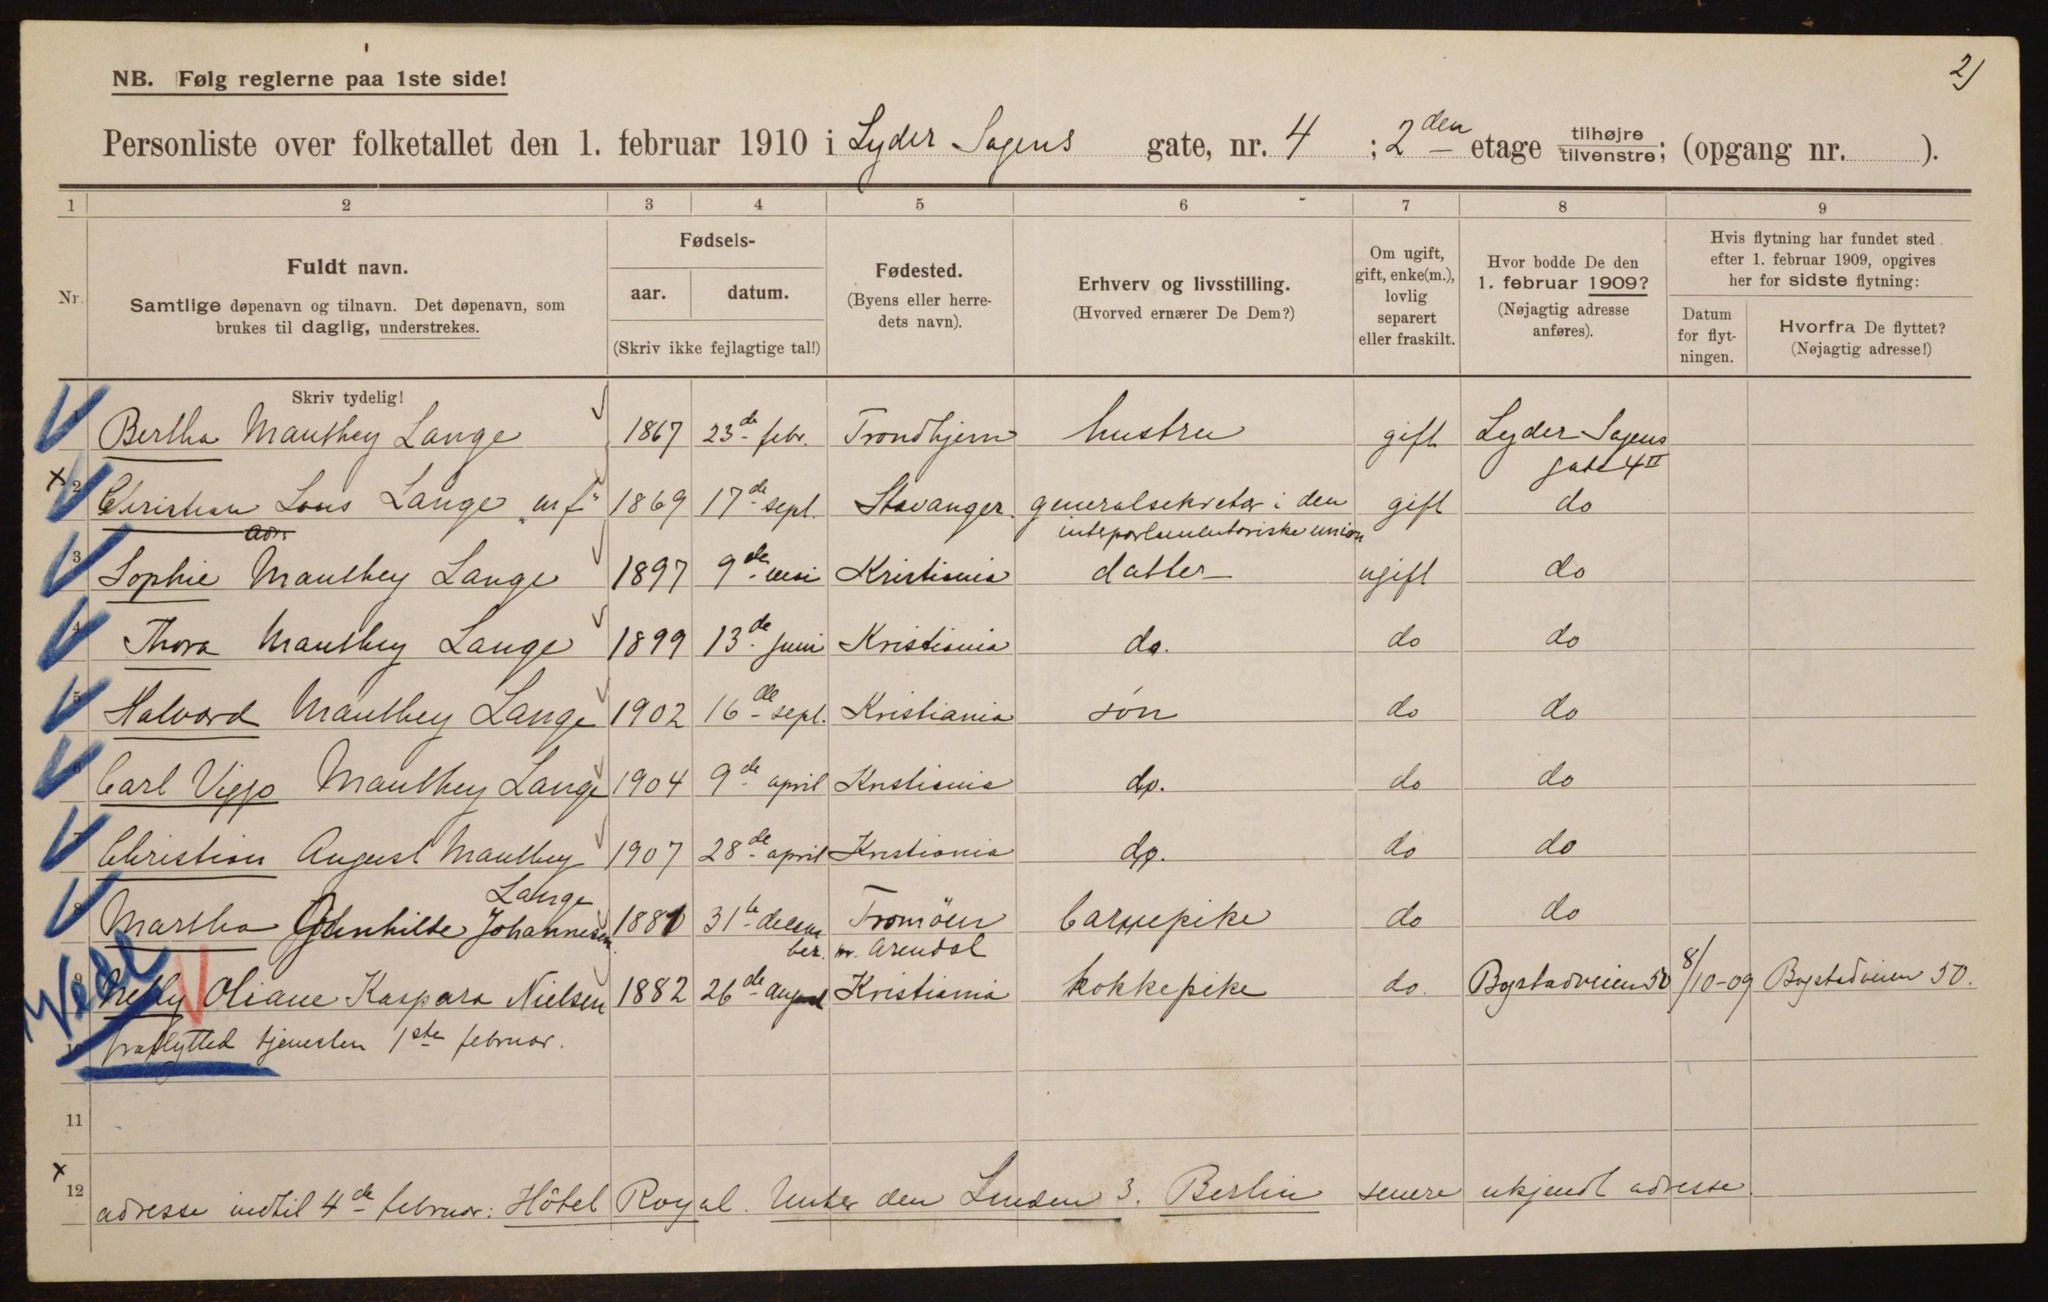 2)
NB. Følg reglerne paa 1ste side!
Personliste over folketallet den 1. februar 1910 i Lyder Sagens gate, nr. 4 ; 2den etage tilhøjre tilvenstre; (opgang nr. ).
1 2 3 4 5 6 7 8 9
Nr.
Fuldt navn.
Samtlige døpenavn og tilnavn. Det døpenavn, som
brukes til daglig, understrekes.
Fødsels-
aar. datum.
(Skriv ikke fejlagtige tal!)
Fødested.
(Byens eller herre-
dets navn).
Erhverv og livsstilling.
(Hvorved ernærer De Dem?)
Om ugift,
gift, enke(m.),
lovlig
separert
eller fraskilt.
Hvor bodde De den
1. februar 1909?
(Nøjagtig adresse
anføres).
Hvis flytning har fundet sted
efter 1. februar 1909, opgives
her for sidste flytning:
Datum
for flyt-
ningen.
Hvorfra De flyttet?
(Nøjagtig adresse!)
Skriv tydelig!
1 Bertha Manthey Lange 1867 23de febr. Trondhjem hustru gift Lyder Sagens
gate 4 II
x 2 Christian Lous Lange "mf" 1869 17de sept. Stavanger generalsekretær i den gift do
interparlamentariske union
3 Sophie Manthey Lange 1897 9de mai Kristiania datter ugift do
4 Thora Manthey Lange 1899 13de juni Kristiania do. do do
5 Halvard Manthey Lange 1902 16de sept. Kristiania søn do do
6 Carl Viggo Manthey Lange 1904 9de april Kristiania do. do do
7 Christian August Manthey 1907 28de april Kristiania do. do do
Lange
8 Martha Johannesen 31te decem Tromöen barnepike do do
ber. nr. Arendal
9 Nelly Oliane Kaspara Nielsen 1882 26de august Kristiania kokkepike do. Bogstadveien 50 8/10-09 Bogstadveien 50.
10 fraflytted tjenesten 1ste februar.
11
x
12 adresse indtil 4de februar: Hôtel Royal. Unter den Linden 3. Berlin senere ukjendt adresse